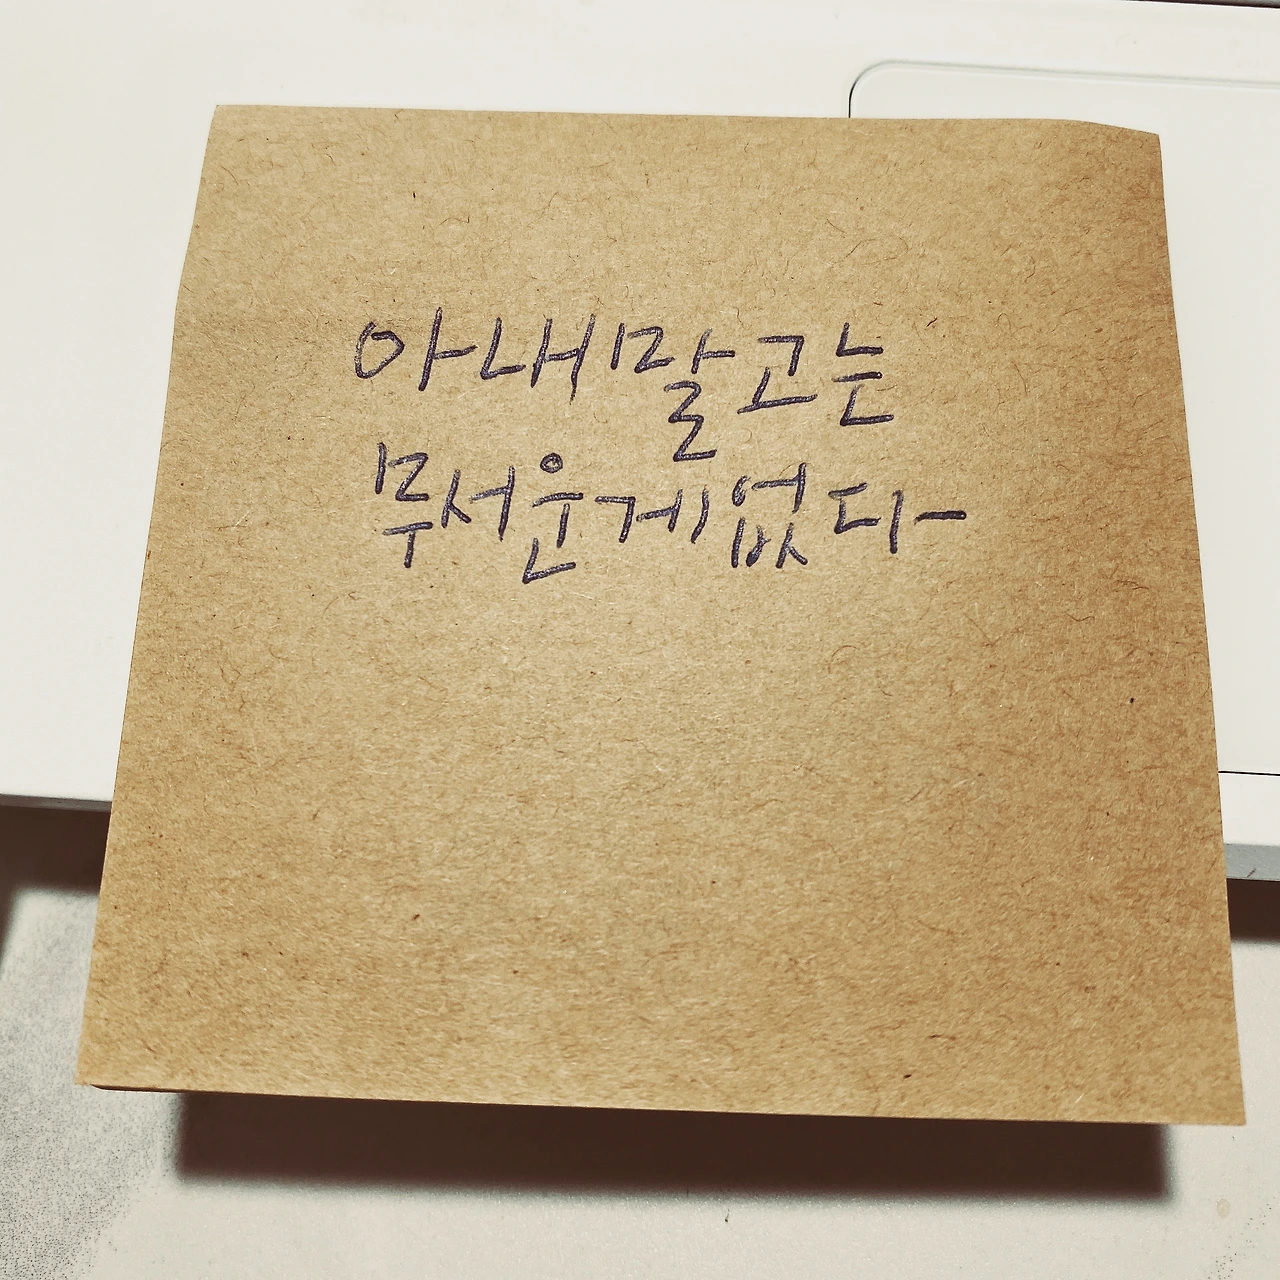 아내말고는
무서운게없다